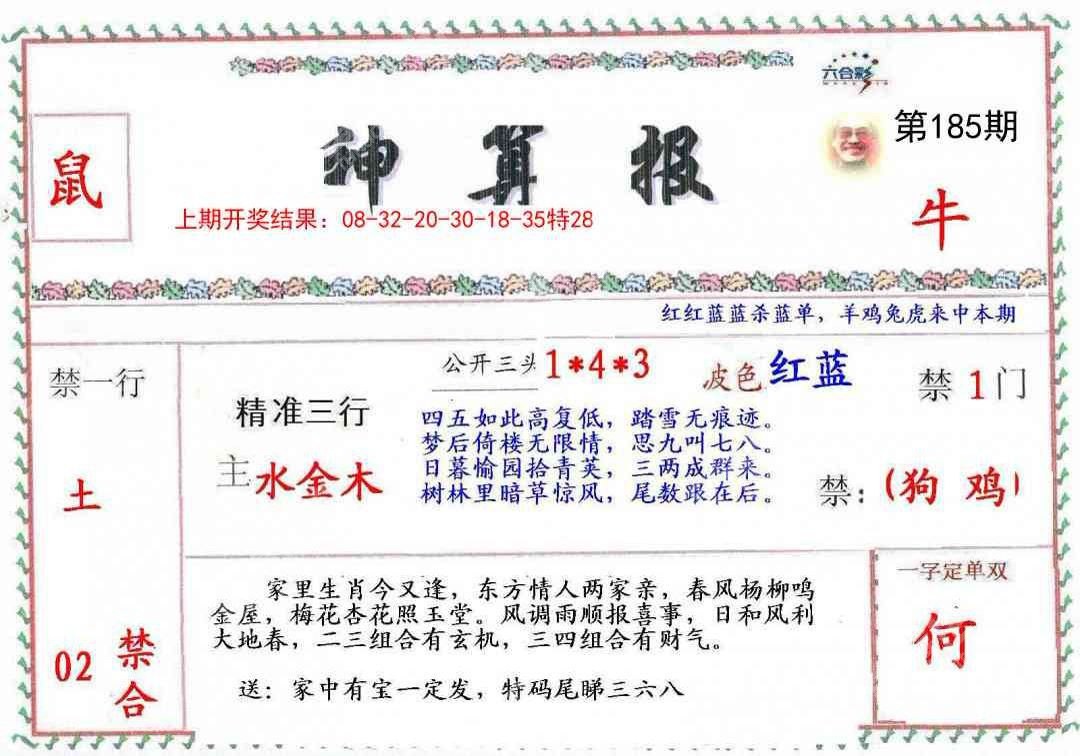 六合彩
第185期
鼠
神算报
上期开奖结果：08-32-20-30-18-35特28
牛
红红蓝蓝杀蓝单，羊鸡兔虎来中本期
禁一行
土
02
禁合
精准三行
主 水金木
公开三头 1*4*3
波色 红蓝
四五如此高复低，踏雪无痕迹。
梦后倚楼无限情，思九叫七八。
日暮愉园拾青英，三两成群来。
树林里暗草惊风，尾数跟在后。
禁1门
禁：(狗 鸡)
家里生肖今又逢，东方情人两家亲，春风杨柳鸣
金屋，梅花杏花照玉堂。风调雨顺报喜事，日和风利
大地春，二三组合有玄机，三四组合有财气。
送：家中有宝一定发，特码尾睇三六八
一字定单双
何